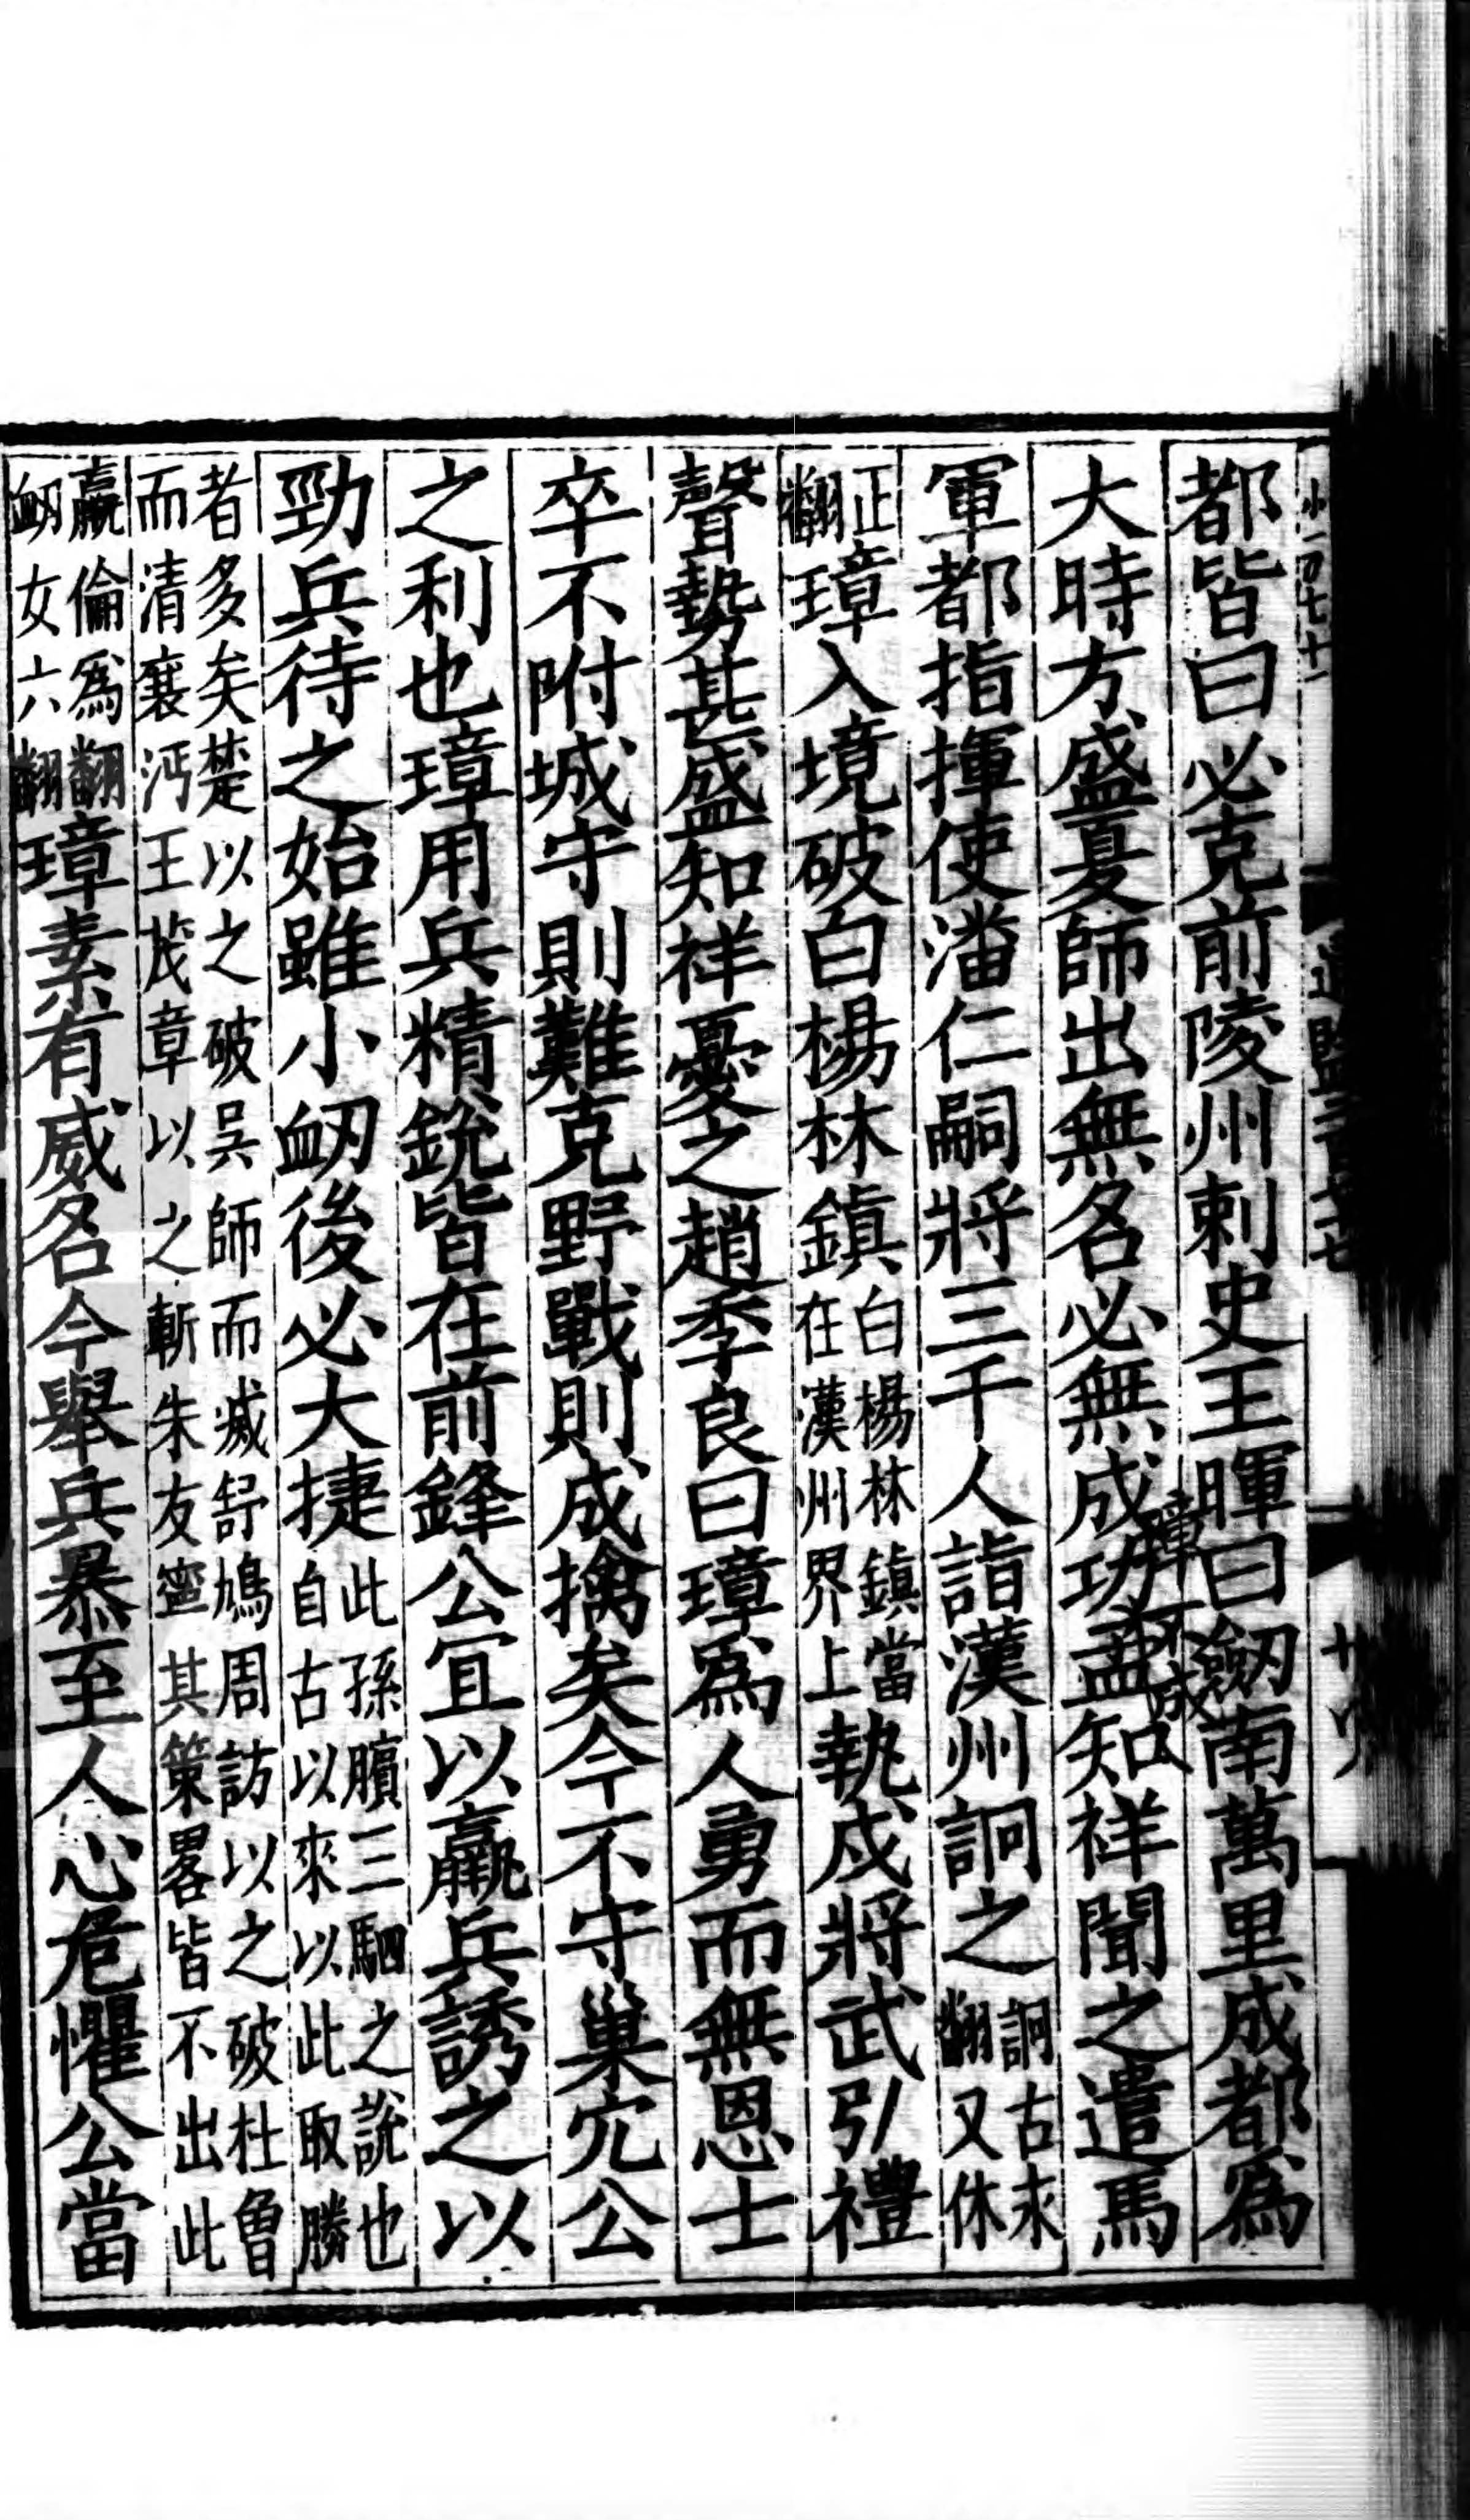 都皆曰必克前陵州刺史王暉曰劒南萬里成都爲
大時方盛夏師出無名必無成功孟知祥聞之遣馬
軍都指揮使潘仁嗣將三千人詣漢州詗之詗古永翻又休
正翻璋入境破白楊林鎮白楊林鎮當在漢州界上執戍將武弘禮
聲勢甚盛知祥憂之趙季良曰璋爲人勇而無恩士
卒不附城守則難克野戰則成擒矣今不守巢穴公
之利也璋用兵精銳皆在前鋒公宜以羸兵誘之以
勁兵待之始雖小衂後必大捷此孫臏三駟之說也自古以來以此取勝
者多矣楚以之破吳師而滅舒鳩周訪以之破杜曾而清襄沔王茂章以之斬朱友寧其策畧皆不出此
羸倫爲翻衂女六翻璋素有威名今舉兵暴至人心危懼公當